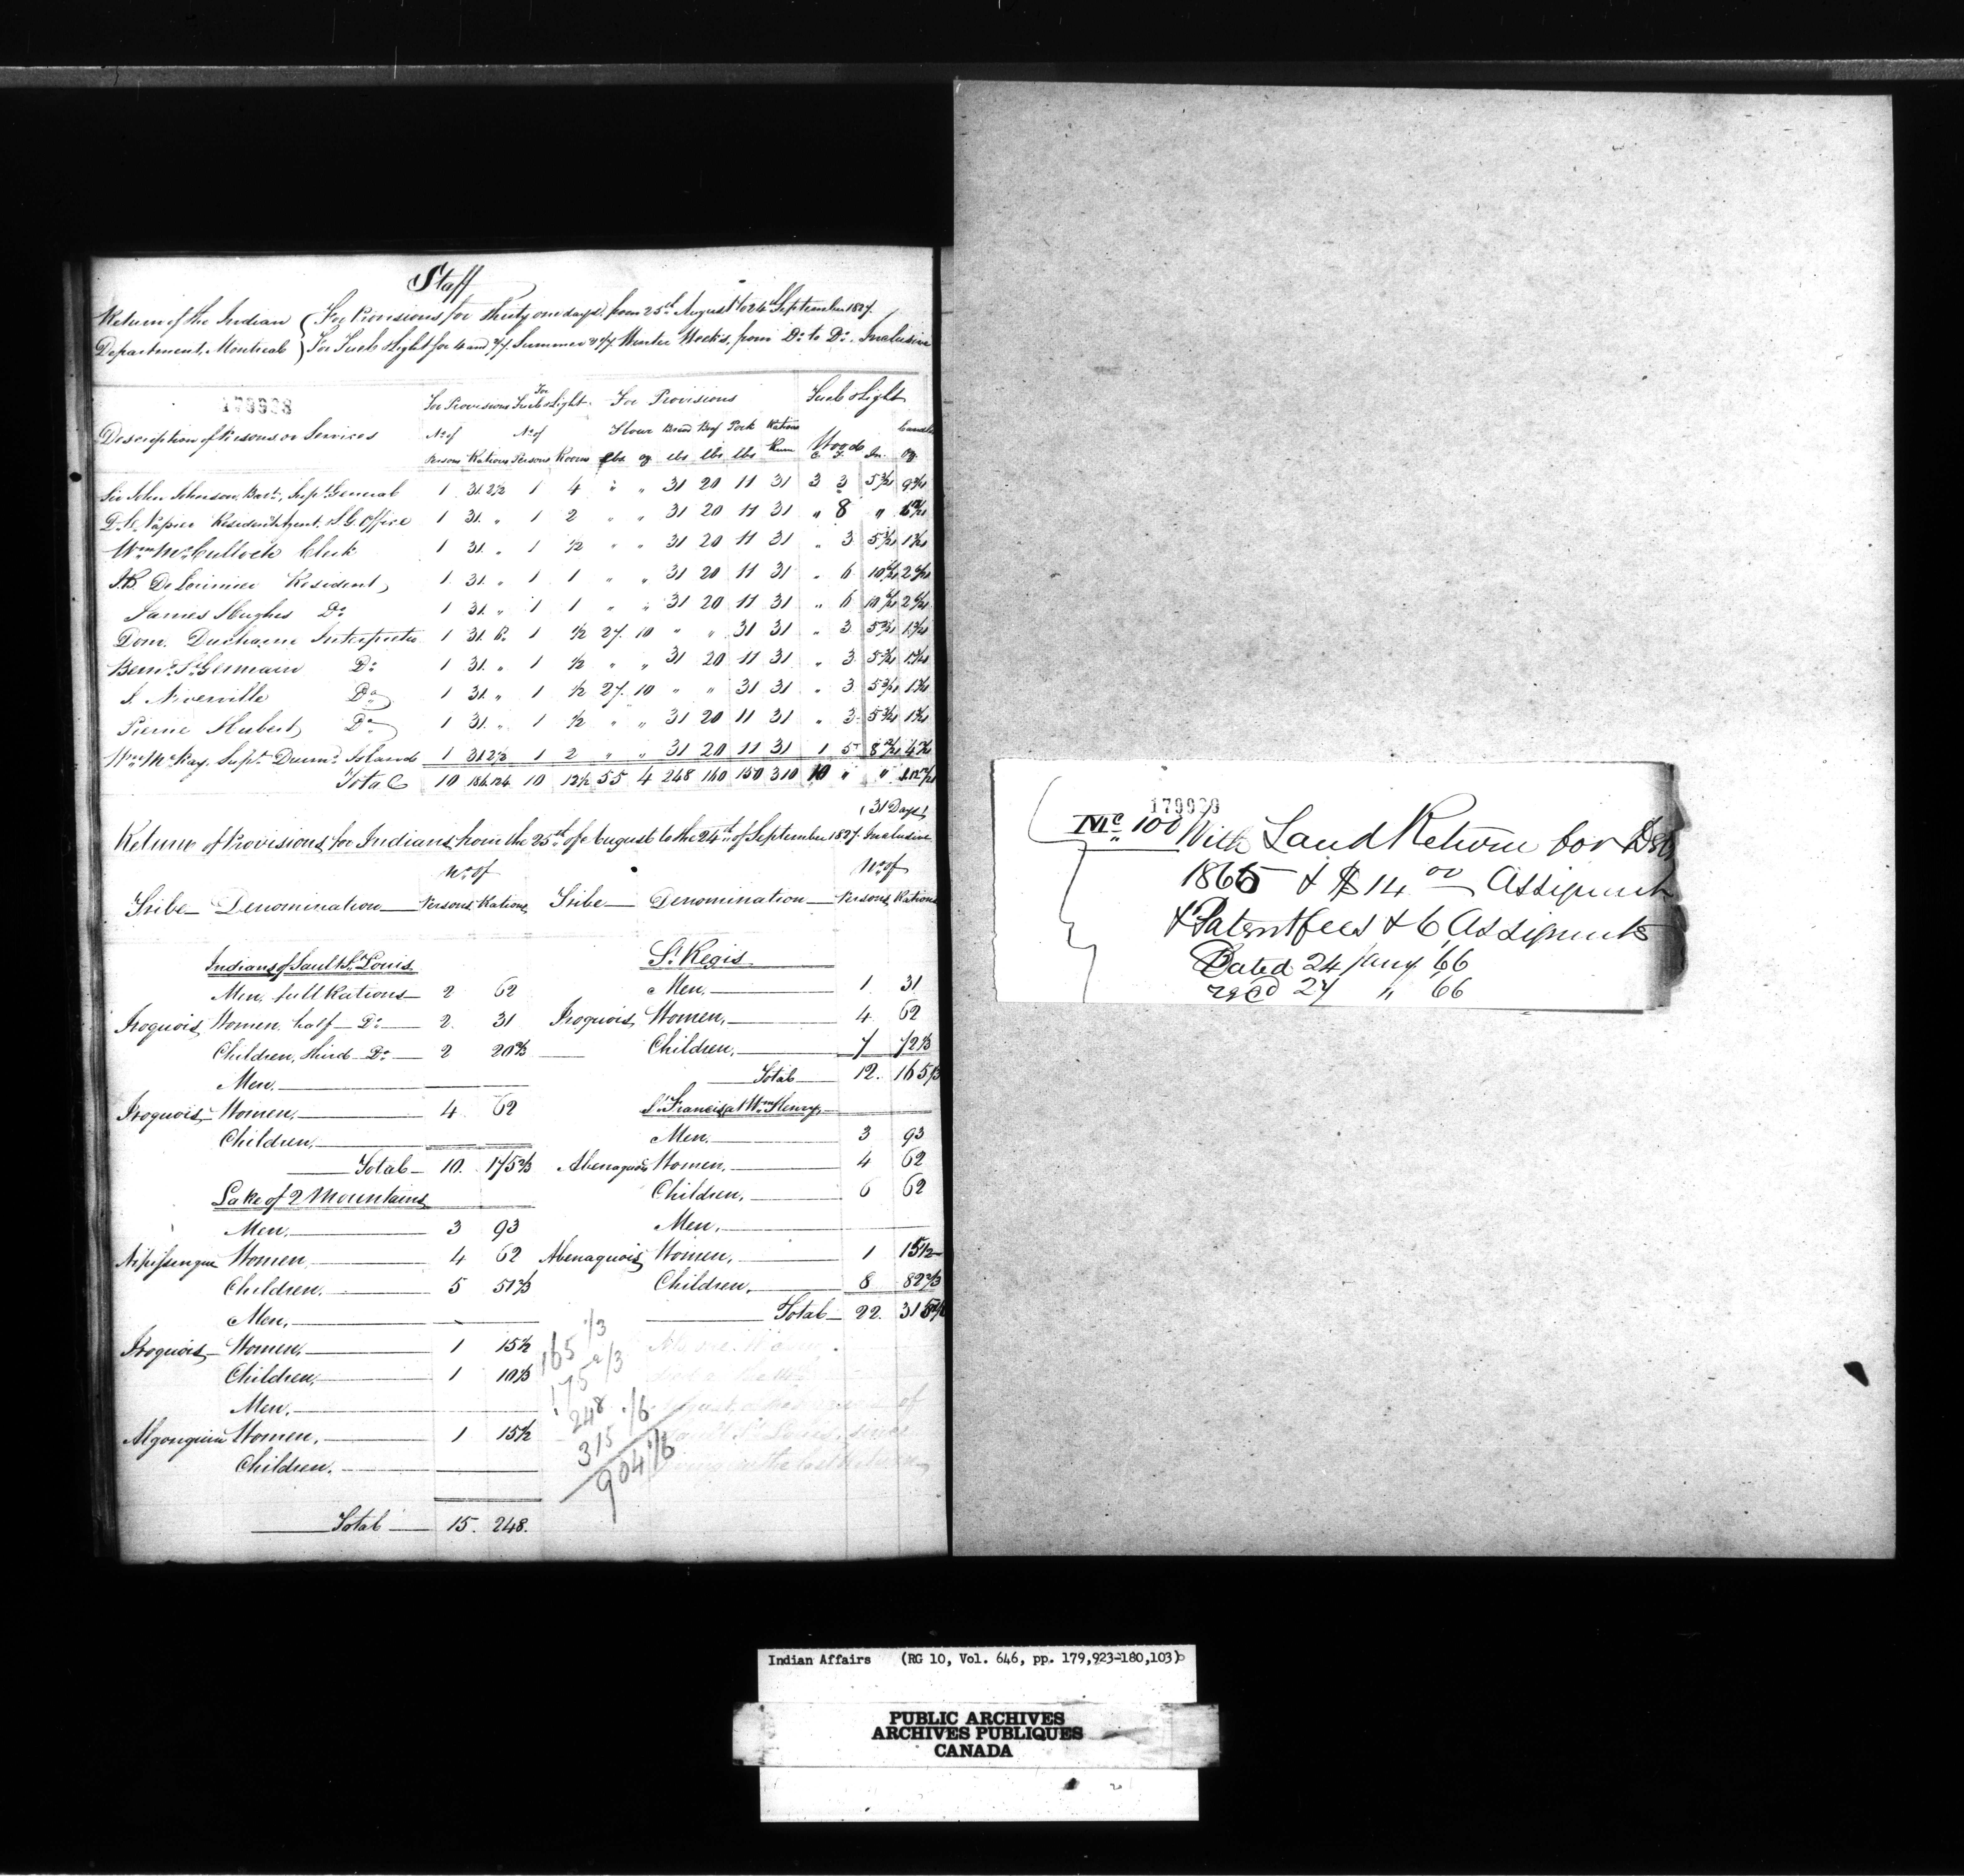 Staff
Return of the Indian Department, Montreal
For Provisions for Thirty one days, from 25th August to 24th September 1827.
For Fuel & Light for 4 and 3/7 Summer Winter Weeks, from Do to Do Inclusive
179928
For Provisions For Fuel & Light For Provisions Fuel & Light
Description of Persons or Services
No of No of Flour Bread Beef Pork Rations Wood Candles
Persons Rations Persons Rooms lbs oz lbs lbs lbs Rum C F In. oz
Sir John Johnson, Bart, Supt General 1 31 2 1/2 1 4 " " 31 20 11 31 3 3
D.C. Napier Resident Agent, S.G. Office 1 31 " 1 2 " " 31 20 11 31 " 8 "
Wm McCulloch Clerk 1 31 " 1 1/2 " " 31 20 11 31 " 3
J.B. DeLorimier Resident 1 31 " 1 1 " " 31 20 11 31 " 6
James Hughes Do 1 31 " 1 1 " " 31 20 11 31 " 6
Dom. Ducharme Interpreter 1 31 1 1/2 27 10 " " 31 31 " 3
Bernd St Germain Do 1 31 " 1 1/2 " " 31 20 11 31 " 3
J. Niverville Do 1 31 " 1 1/2 27 10 " " 31 31 " 3
Pierre Hubert Do 1 31 " 1 1/2 " " 31 20 11 31 " 3
Wm McKay, Supt Drumd Island 1 31 2 1/2 1 2 " " 31 20 11 31 1 5
Total 10 10 12 1/2 55 4 248 160 150 310 10 " "
(31 Days)
Return of Provisions for Indians from the 25th of August to the 24th of September 1827. Inclusive
No of No of
Tribe Denomination Persons Rations Tribe Denomination Persons Rations
Indians of Sault St Louis
Men, full Rations 2 62
Iroquois Women half Do 2 31
Children, third Do 2 20 2/3
Men.
Iroquois Women, 4 62
Children,
Total 10. 175 2/3
Lake of 2 Mountains
Men, 3 93
Nipissingue Women 4 62
Children, 5 51 2/3
Men,
Iroquois Women, 1 15 1/2
Children, 1 10 1/3
Men,
Algonquin Women, 1 15 1/2
Children.
Total 15. 248.
St Regis
Men, 1 31
Iroquois Women, 4 62
Children, 7 72 1/3
Total 12. 165 1/3
St Francis at Wm Henry
Men, 3 93
Abenaquois Women, 4 62
Children, 6 62
Men,
Abenaquois Women, 1 15 1/2
Children, 8 82 2/3
Total 22.
165 1/3
175 2/3
248
315 1/6
904 1/6
179929
Mc 100 With Land Return for
1865 & $14 00 Assignmt
& Patent fees & 6 Assignmts
Dated 24 Jany '66
recd 27 " '66
Indian Affairs (RG 10, Vol. 646, pp. 179,923-180,103)
PUBLIC ARCHIVES
ARCHIVES PUBLIQUES
CANADA